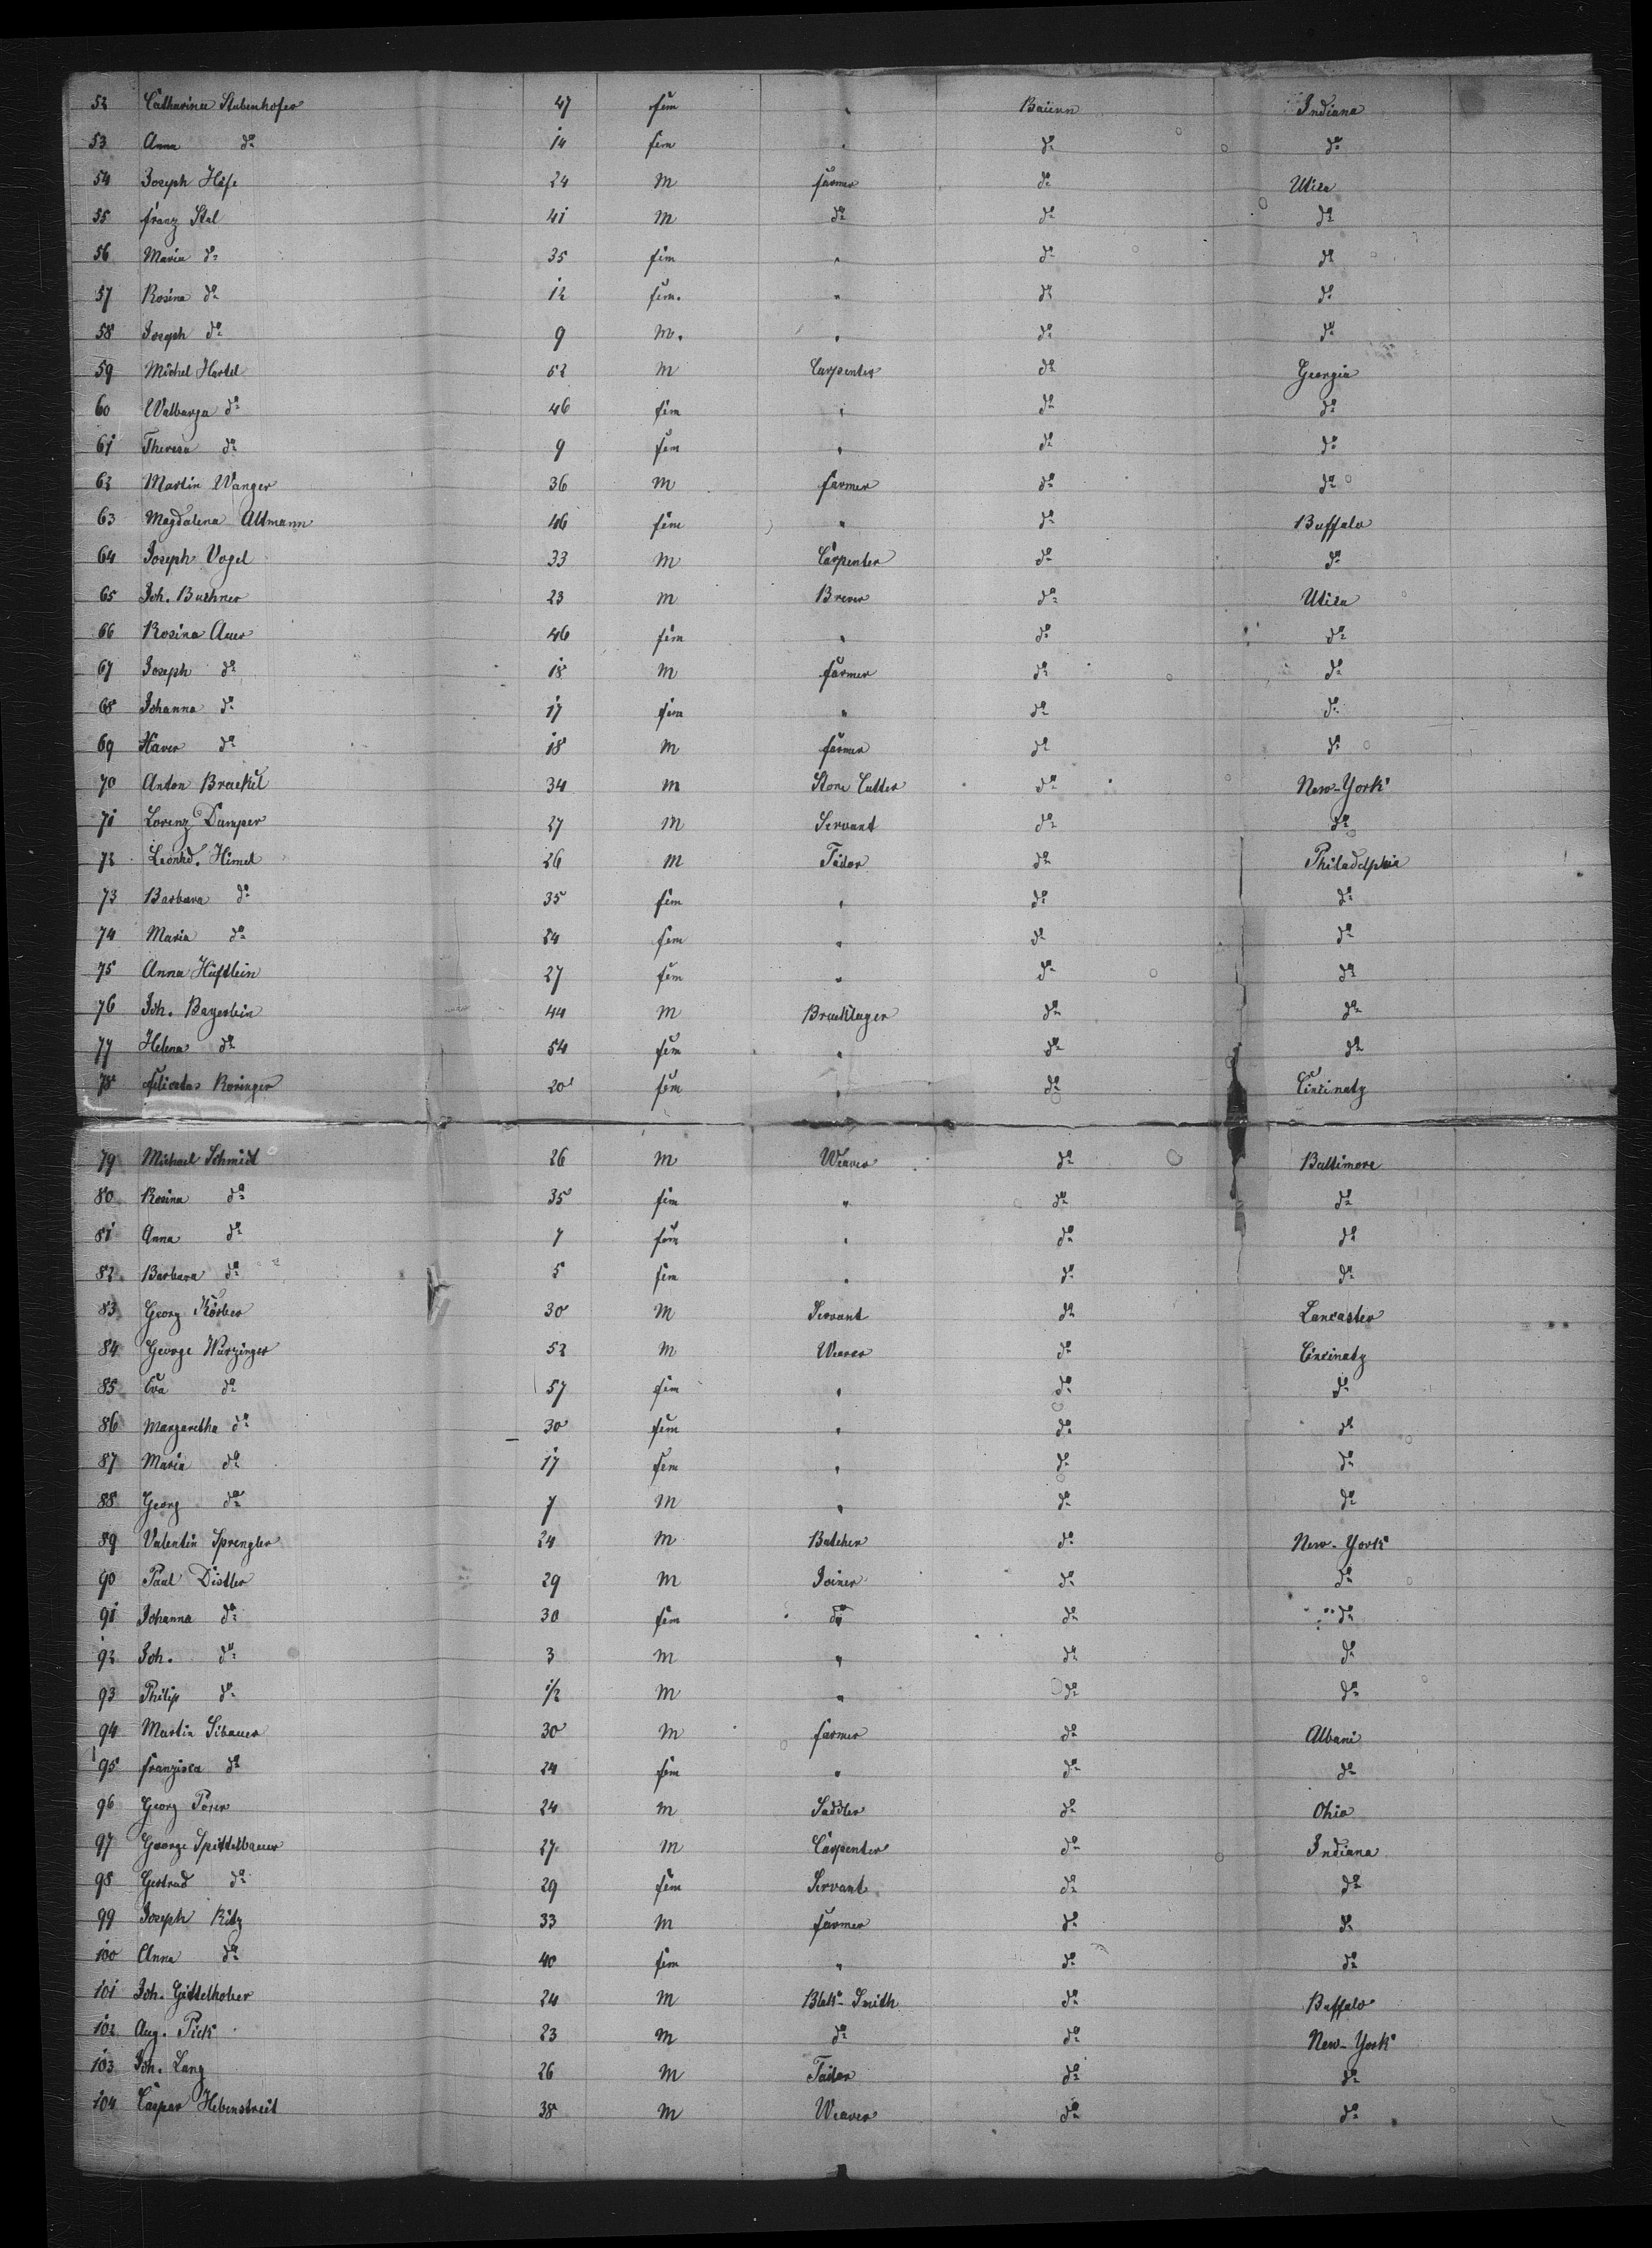 52 Catharina Stubenhofer 47 fem " Baiern Indiana
53 Anna do 14 fem " do do
54 Joseph Häfe 24 M farmer do Utica
55 franz Stal 41 M do do do
56 Maria do 35 fem " do do
57 Rosina do 12 fem. " do do
58 Joseph do 9 M. " do do
59 Michel Hartel 52 M Carpenter do Georgia
60 Walburga do 46 fem " do do
61 Theresa do 9 fem " do do
62 Martin Wanger 36 M farmer do do
63 Magdalena Altmann 46 fem " do Buffalo
64 Joseph Vogel 33 M Carpenter do do
65 Joh. Buchner 23 M Brever do Utica
66 Rosina Auer 46 fem " do do
67 Joseph do 18 M farmer do do
68 Johanna do 17 fem " do do
69 Xaver do 18 M farmer do do
70 Anton Braekel 34 M Stone Cutter do New-York
71 Lorenz Damper 27 M Servant do do
72 Leonhd. Himel 26 M Tailor do Philadelphia
73 Barbara do 35 fem " do do
74 Maria do 24 fem " do do
75 Anna Hüftlein 27 fem " do do
76 Joh. Bayerlein 44 M Bracklager do do
77 Helena do 54 fem " do do
78 felicitas Rosinger 20 fem " do Cincinaty
79 Michael Schmidt 26 M Weaver do Baltimore
80 Rosina do 35 fem " do do
81 Anna do 7 fem " do do
82 Barbara do 5 fem " do do
83 Georg Körber 30 M Servant do Lancaster
84 George Würzinger 52 M Weaver do Cincinaty
85 Eva do 57 fem " do do
86 Margaretha do 30 fem " do do
87 Maria do 17 fem " do do
88 Georg do 7 M " do do
89 Valentin Sprengler 24 M Butcher do New-York
90 Paul Distler 29 M Joiner do do
91 Johanna do 30 fem do do do
92 Joh. do 3 M " do do
93 Philip do 1/2 M " do do
94 Martin Sibauer 30 M farmer do Albani
95 franzisca do 24 fem " do do
96 Georg Poser 24 M Saddler do Ohio
97 George Spittelbauer 27 M Carpenter do Indiana
98 Gertrud do 29 fem Servant do do
99 Joseph Ritz 33 M farmer do do
100 Anna do 40 fem " do do
101 Joh. Gittelhober 24 M Blak-Smith do Buffalo
102 Aug. Pick 23 M do do New-York
103 Joh. Lang 26 M Tailor do do
104 Caspar Hebenstreit 38 M Weaver do do